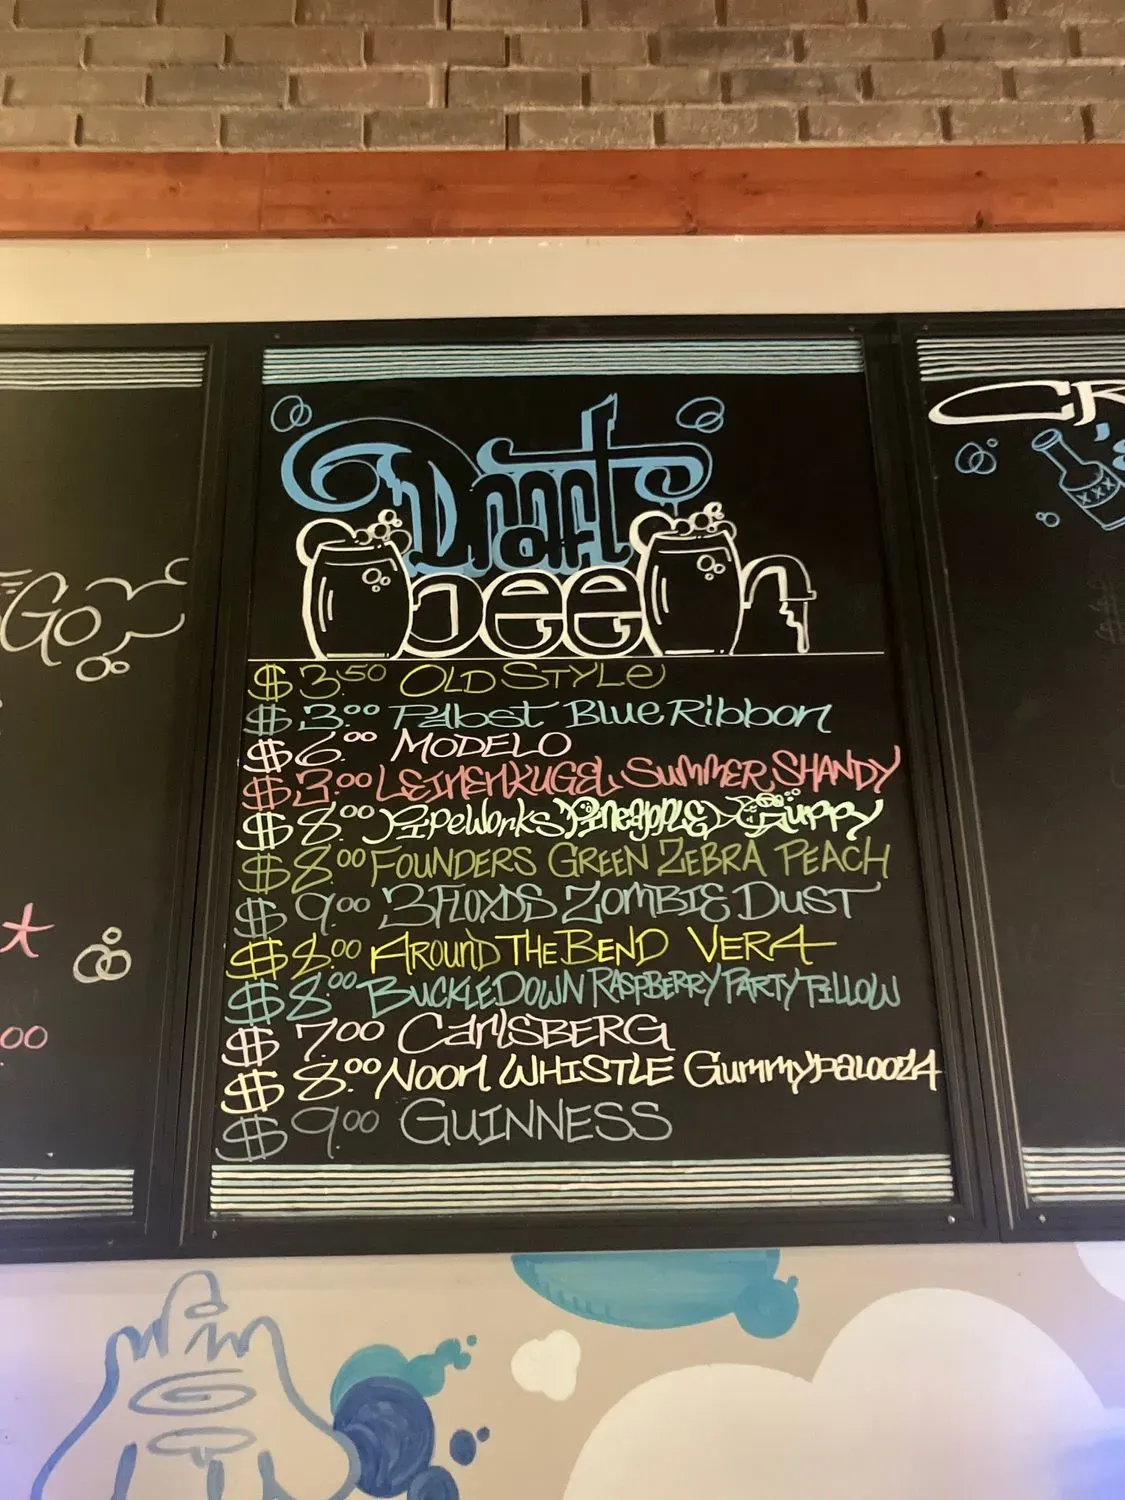 Draft
beer
$3.50 OLD STYLE
$3.00 Pabst Blue Ribbon
$6.00 MODELO
$3.00 LEINENKUGEL SUMMER SHANDY
$8.00 PipeWorks Pineapple Guppy
$8.00 FOUNDERS GREEN ZEBRA PEACH
$9.00 3 FLOYDS ZOMBIE DUST
$8.00 AROUND THE BEND VERA
$8.00 BUCKLEDOWN RASPBERRY PARTY PILLOW
$7.00 CarlSBERG
$8.00 NOON WHISTLE GummypalOOZA
$9.00 GUINNESS
Go
.00
CR
XXX